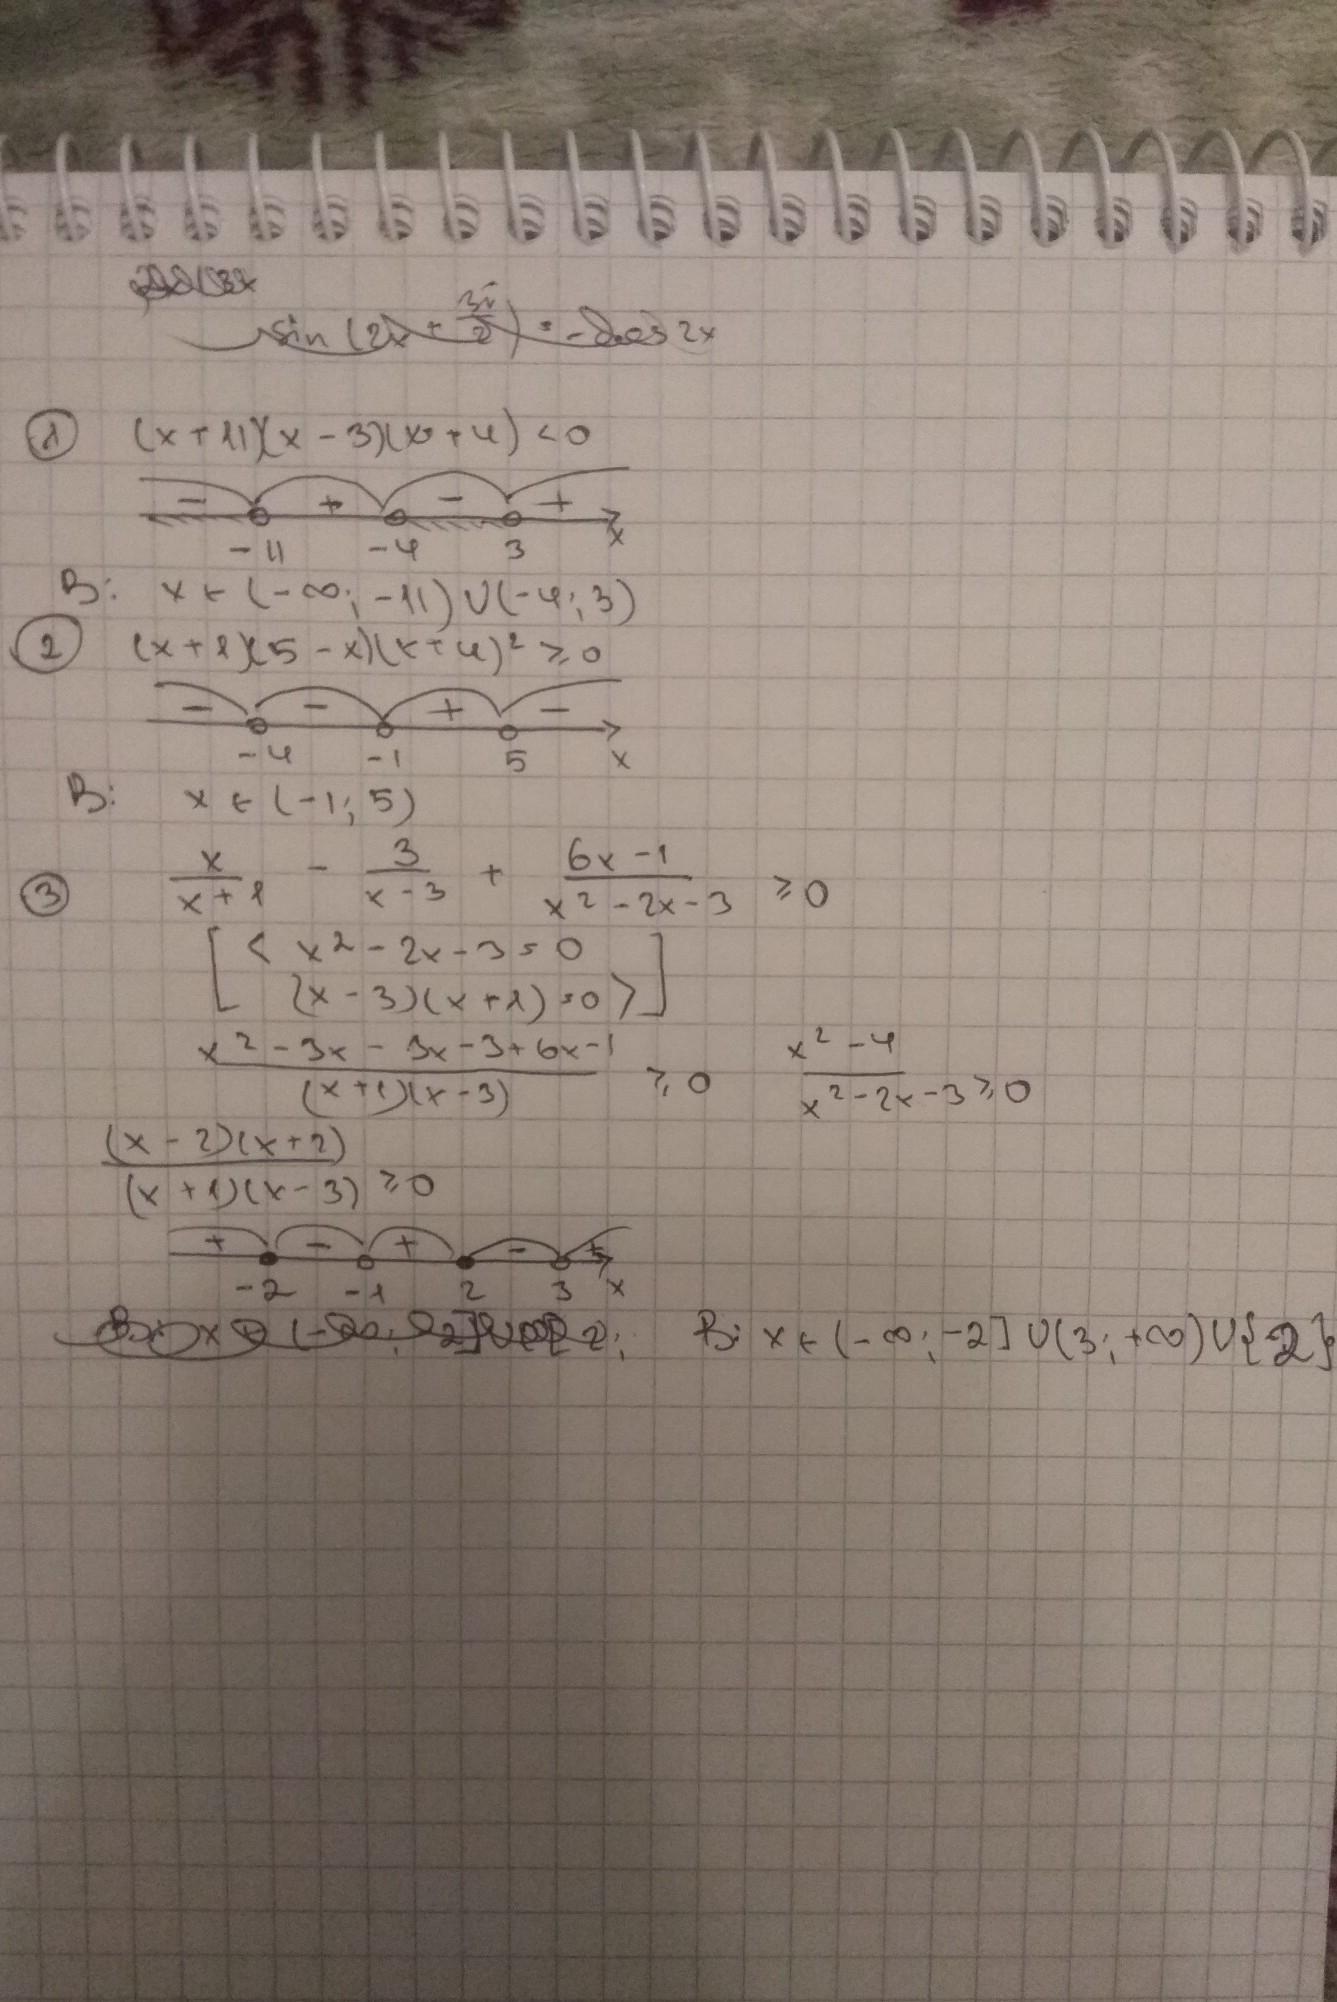 sin (2x + 3π/2) = - cos 2x
① (x + 11)(x - 3)(x + 4) < 0
- + - +
-11 -4 3 x
В: x ∈ (-∞; -11) ∪ (-4; 3)
② (x + 1)(5 - x)(x + 4)² ≥ 0
- - + -
-4 -1 5 x
В: x ∈ (-1; 5)
③ x/(x + 1) - 3/(x - 3) + (6x - 1)/(x² - 2x - 3) ≥ 0
[ < x² - 2x - 3 = 0
(x - 3)(x + 1) = 0 > ]
(x² - 3x - 3x - 3 + 6x - 1)/((x + 1)(x - 3)) ≥ 0 (x² - 4)/(x² - 2x - 3) ≥ 0
((x - 2)(x + 2))/((x + 1)(x - 3)) ≥ 0
+ - + - +
-2 -1 2 3 x
В: x ∈ (-∞; -2] ∪ (3; +∞) ∪ {2}